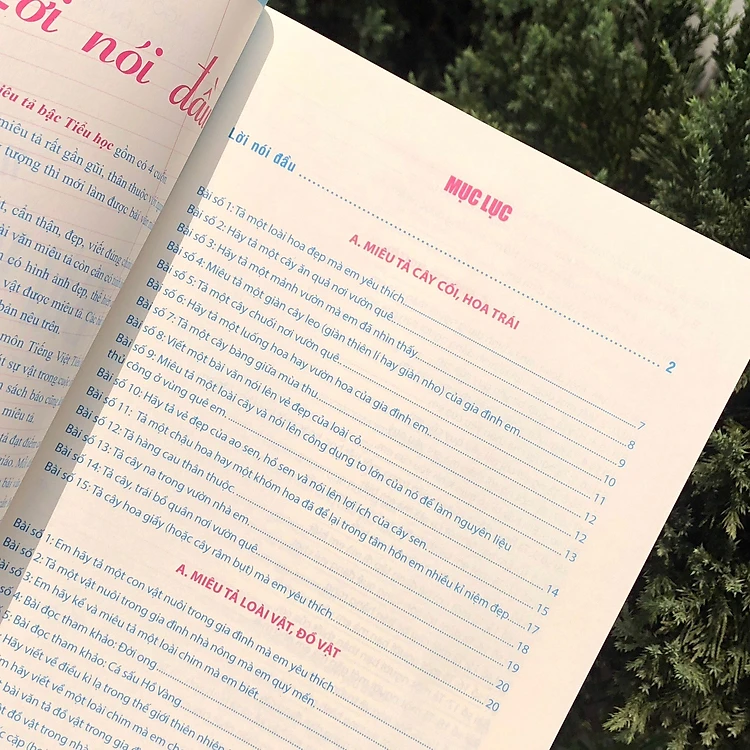 Lời nói đầu
iêu tả bậc Tiểu học gồm có 4 cuốn
miêu tả rất gần gũi, thân thuộc với
tượng thì mới làm được bài văn
cẩn thận, đẹp, viết đúng
ài văn miêu tả còn cần có hình
có hình ảnh đẹp, thể hiện
vật được miêu tả. Các
bản nêu trên.
môn Tiếng Việt
sự vật trong cuộc
sách báo cũng
miêu tả.
MỤC LỤC
Lời nói đầu 2
A. MIÊU TẢ CÂY CỐI, HOA TRÁI
Bài số 1: Tả một loài hoa đẹp mà em yêu thích 7
Bài số 2: Hãy tả một cây ăn quả nơi vườn quê 8
Bài số 3: Hãy tả một mảnh vườn mà em đã nhìn thấy 9
Bài số 4: Miêu tả một giàn cây leo (giàn thiên lí hay giàn nho) của gia đình em 10
Bài số 5: Tả một cây chuối nơi vườn quê 11
Bài số 6: Hãy tả một luống hoa hay vườn hoa của gia đình em 12
Bài số 7: Tả một cây bàng giữa mùa thu 12
Bài số 8: Viết một bài văn nói lên vẻ đẹp của loài cỏ 13
Bài số 9: Miêu tả một loài cây và nói lên công dụng to lớn của nó để làm nguyên liệu
thủ công ở vùng quê em 14
Bài số 10: Hãy tả vẻ đẹp của ao sen, hồ sen và nói lên lợi ích của cây sen 15
Bài số 11: Tả một chậu hoa hay một khóm hoa đã để lại trong tâm hồn em nhiều kỉ niệm đẹp 17
Bài số 12: Tả hàng cau thân thuộc 18
Bài số 13: Tả cây na trong vườn nhà em 19
Bài số 14: Tả cây, trái bồ quân nơi vườn quê 20
Bài số 15: Tả cây hoa giấy (hoặc cây râm bụt) mà em yêu thích 20
A. MIÊU TẢ LOÀI VẬT, ĐỒ VẬT
Bài số 1: Em hãy tả một con vật nuôi trong gia đình mà em yêu thích
Bài số 2: Tả một vật nuôi trong gia đình nhà nông mà em quý mến
số 3: Em hãy kể và miêu tả một loài chim mà em biết
số 4: Bài đọc tham khảo: Đời ong
5: Bài đọc tham khảo: Cá sấu Hố Vàng
Hãy viết về điều kì lạ trong thế giới thiên nhiên
hãy viết về một loài chim mà em
bài văn tả đồ vật trong gia đình
đồ vật trong nhà
cặp (h